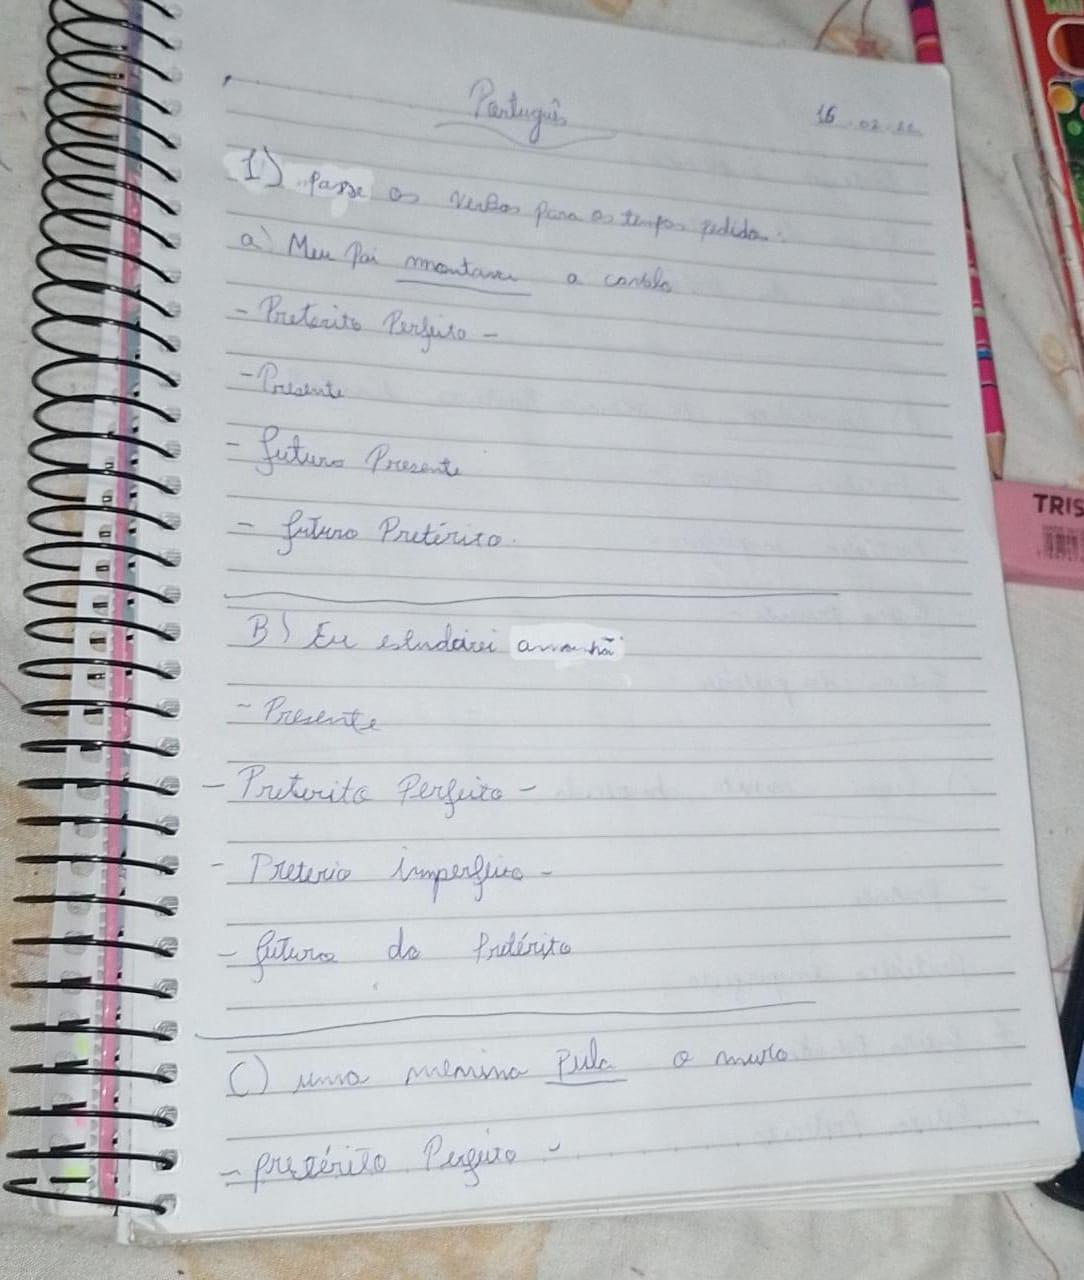 Português
16.02.22
1) Passe os verbos para os tempos pedidos:
a) Meu Pai montava a cavalo
- Preterito Perfeito -
- Presente
- futuro Presente
- futuro Pretérito.
B) Eu estudarei amanhã
- Presente
- Preterito Perfeito -
- Preterio imperfeito -
- futuro do Pretérito
C) uma menina Pula o muro
- pretérito Perfeito -
TRIS